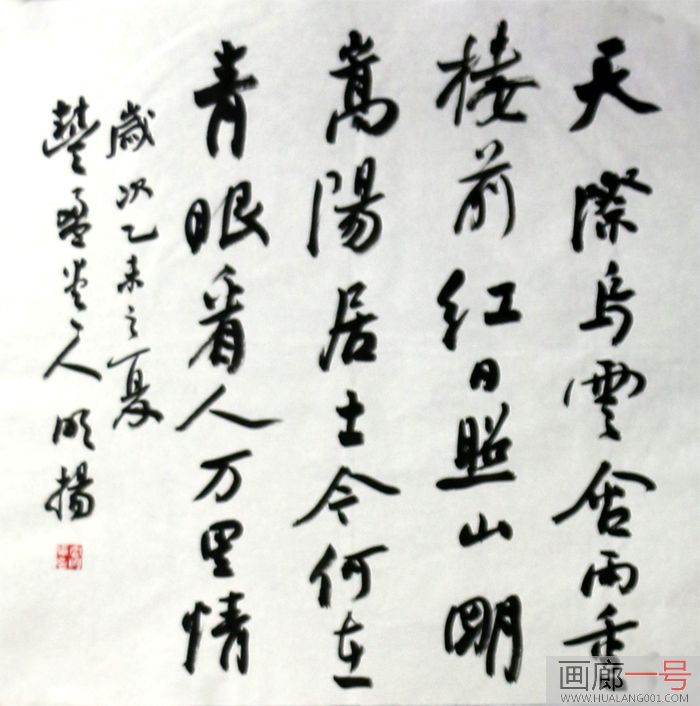 天際烏雲含雨重
樓前紅日照山明
嵩陽居士今何在
青眼看人万里情
歲次乙未之夏
豐盈堂人 明揚
画廊一号
WWW.HUALANG001.COM